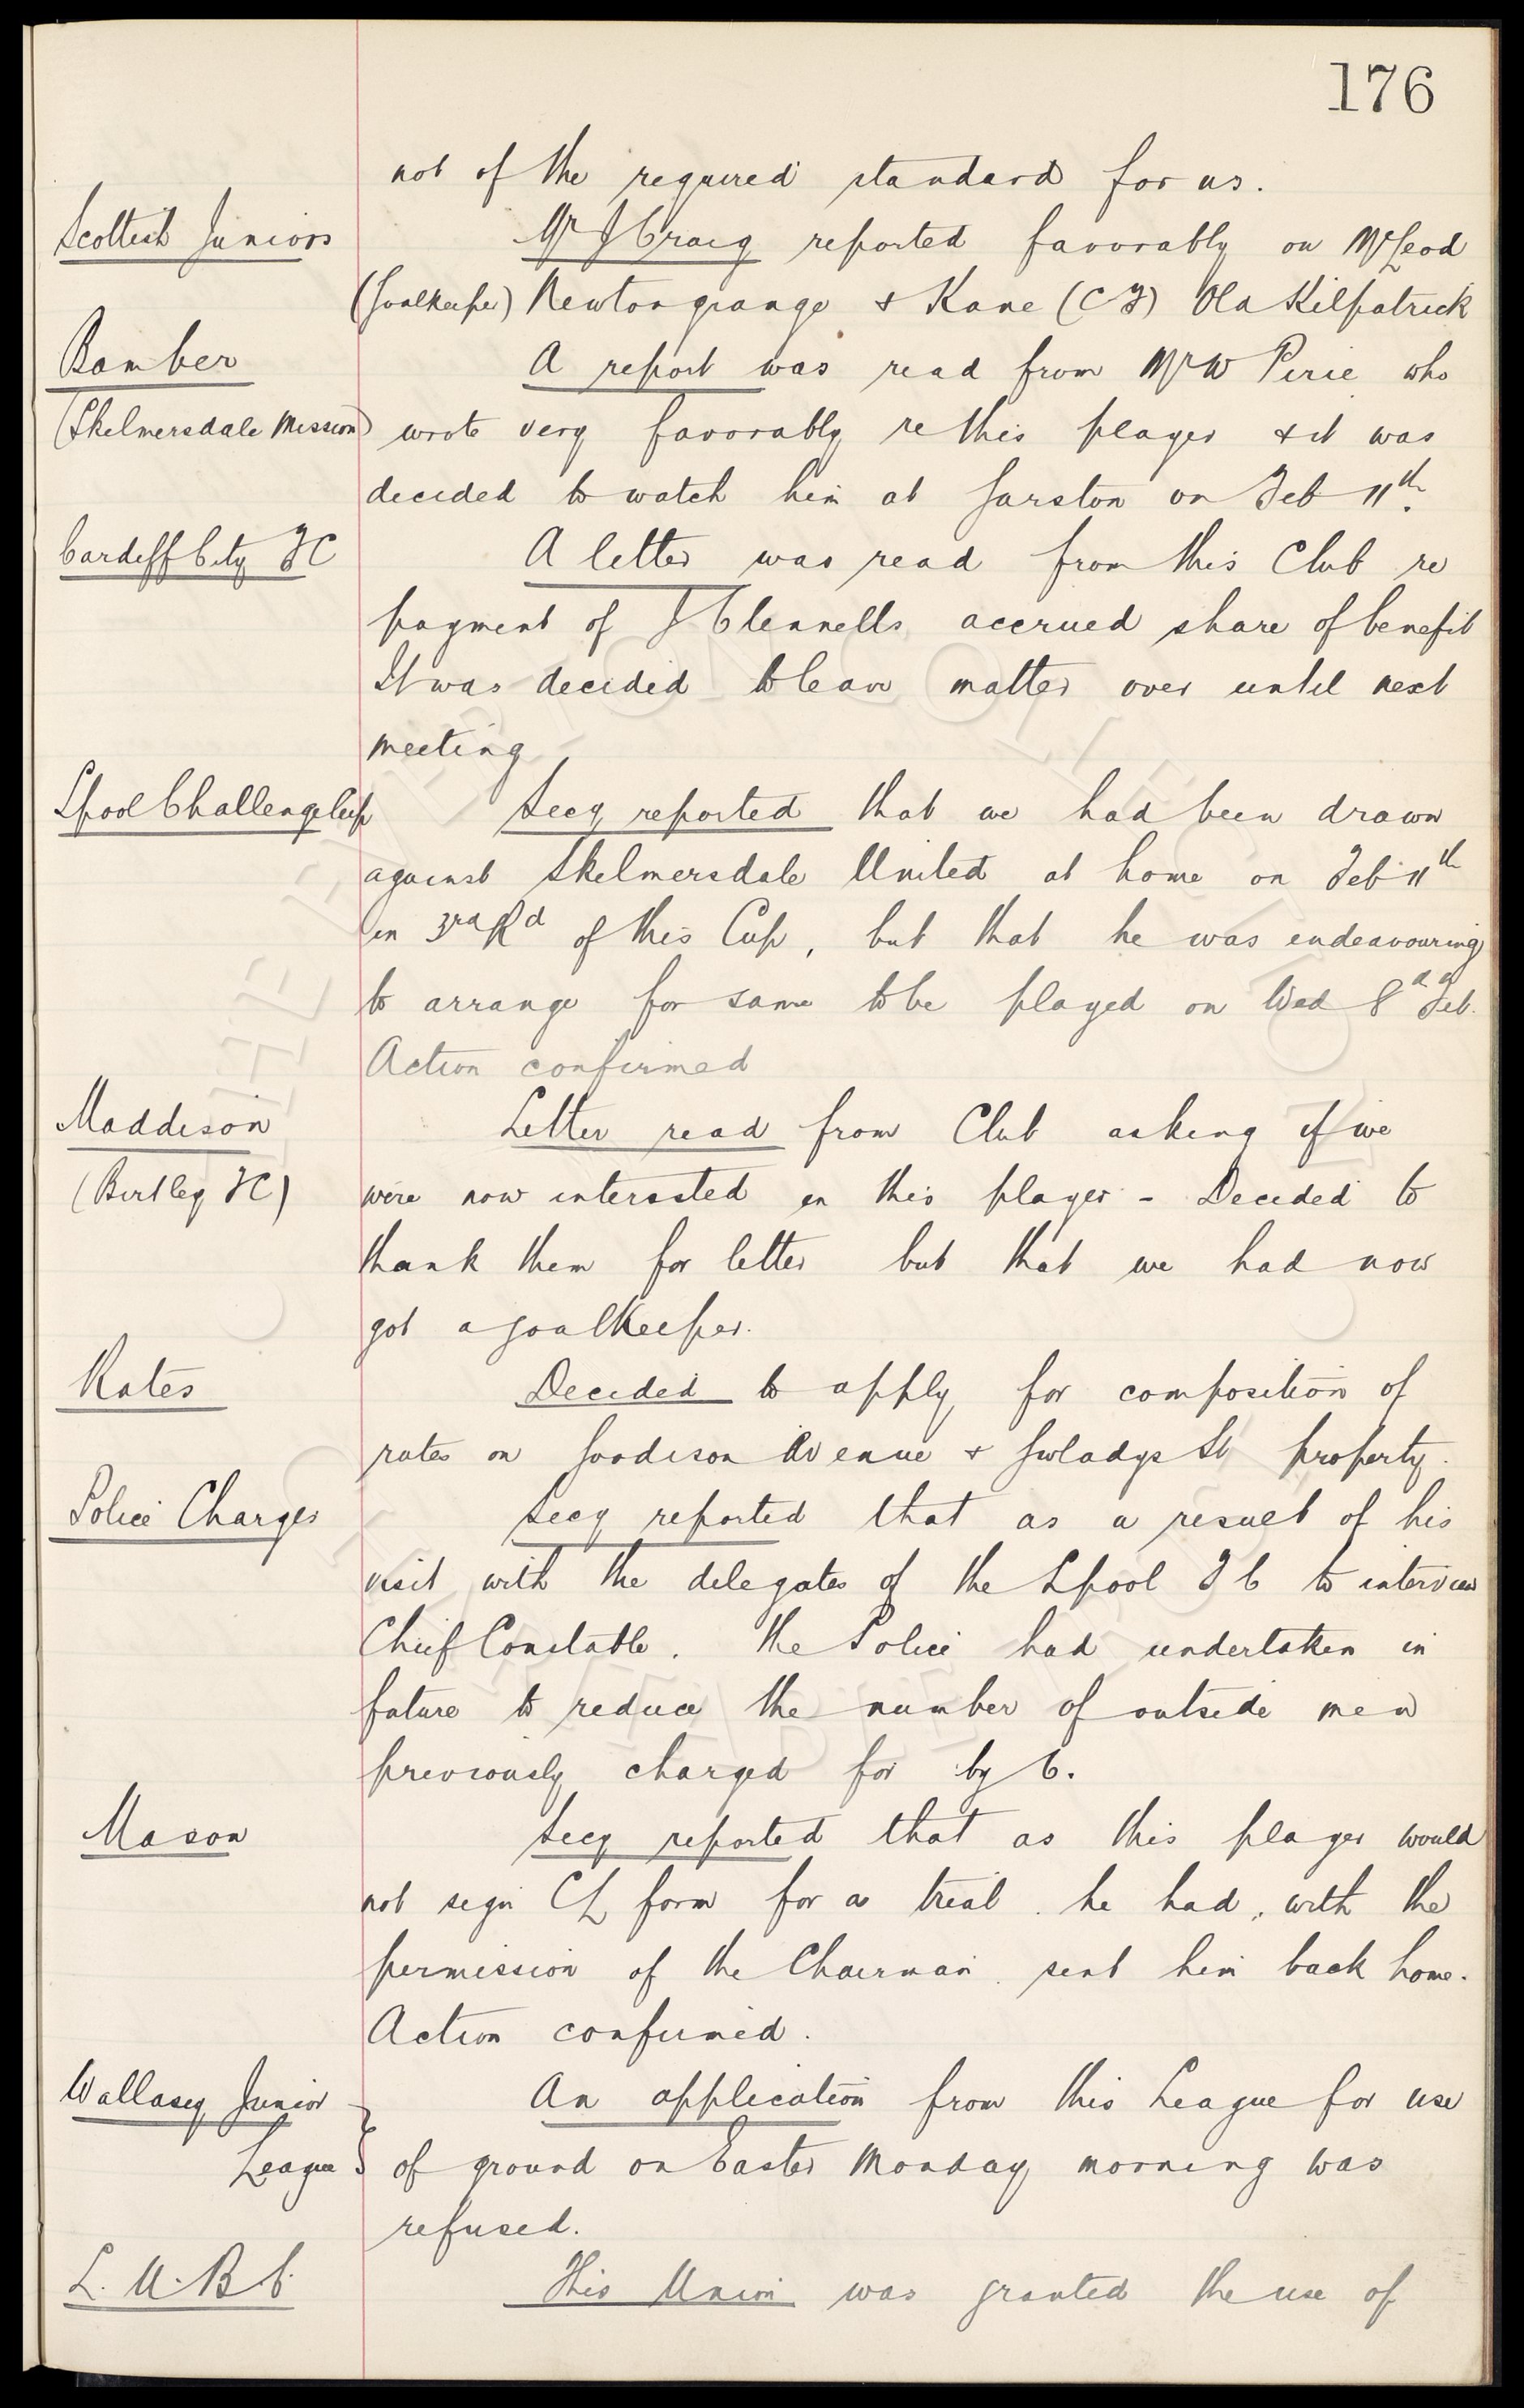 176
not of the required standard for us.
Scottish Juniors
Mr J Craig reported favorably on McLeod
(Goalkeeper) Newtongrange & Kane (CF) Old Kilpatrick
Bamber
A report was read from Mr W Pirie who
(Skelmersdale Mission) wrote very favorably re this player & it was
decided to watch him at Garston on Feb 11th.
Cardiff City FC
A letter was read from this Club re
payment of J Clennells accrued share of benefit
It was decided to leave matter over until next
meeting
Lpool Challenge Cup
Secy reported that we had been drawn
against Skelmersdale United at home on Feb 11th
in 3rd Rd of this Cup, but that he was endeavouring
to arrange for same to be played on Wed 8th Feb.
Action confirmed
Maddison
Letter read from Club asking if we
(Birtley FC) were now interested in this player - Decided to
thank them for letter but that we had now
got a goalkeeper.
Rates
Decided to apply for composition of
rates on Goodison Avenue & Gwladys St property.
Police Charges
Secy reported that as a result of his
visit with the delegates of the Lpool F C to interview
Chief Constable. the Police had undertaken in
future to reduce the number of outside men
previously charged for by 6.
Mason
Secy reported that as this player would
not sign CL form for a trial. he had, with the
permission of the Chairman sent him back home.
Action confirmed.
Wallasey Junior
An application from this League for use
League } of ground on Easter Monday morning was
refused.
L. U. B. C.
This Union was granted the use of